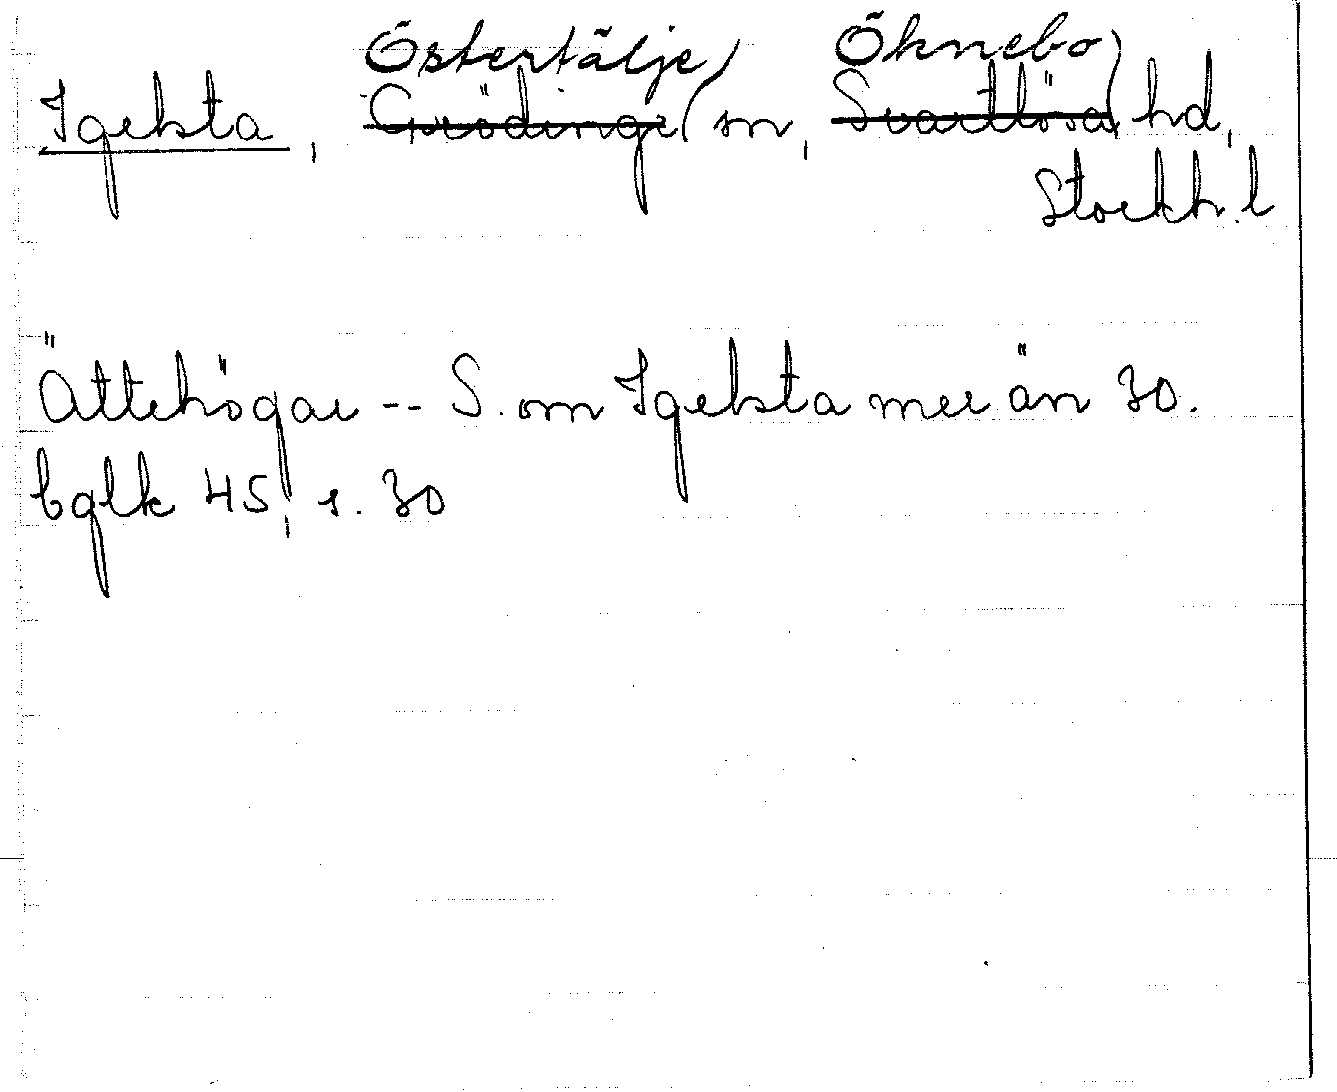 Östertälje Öknebo
Igelsta, Grödinge sn, Svartlösa hd,
Stockh. l
Ättehögar -- S. om Igelsta mer än 30.
bglk 45, s. 30